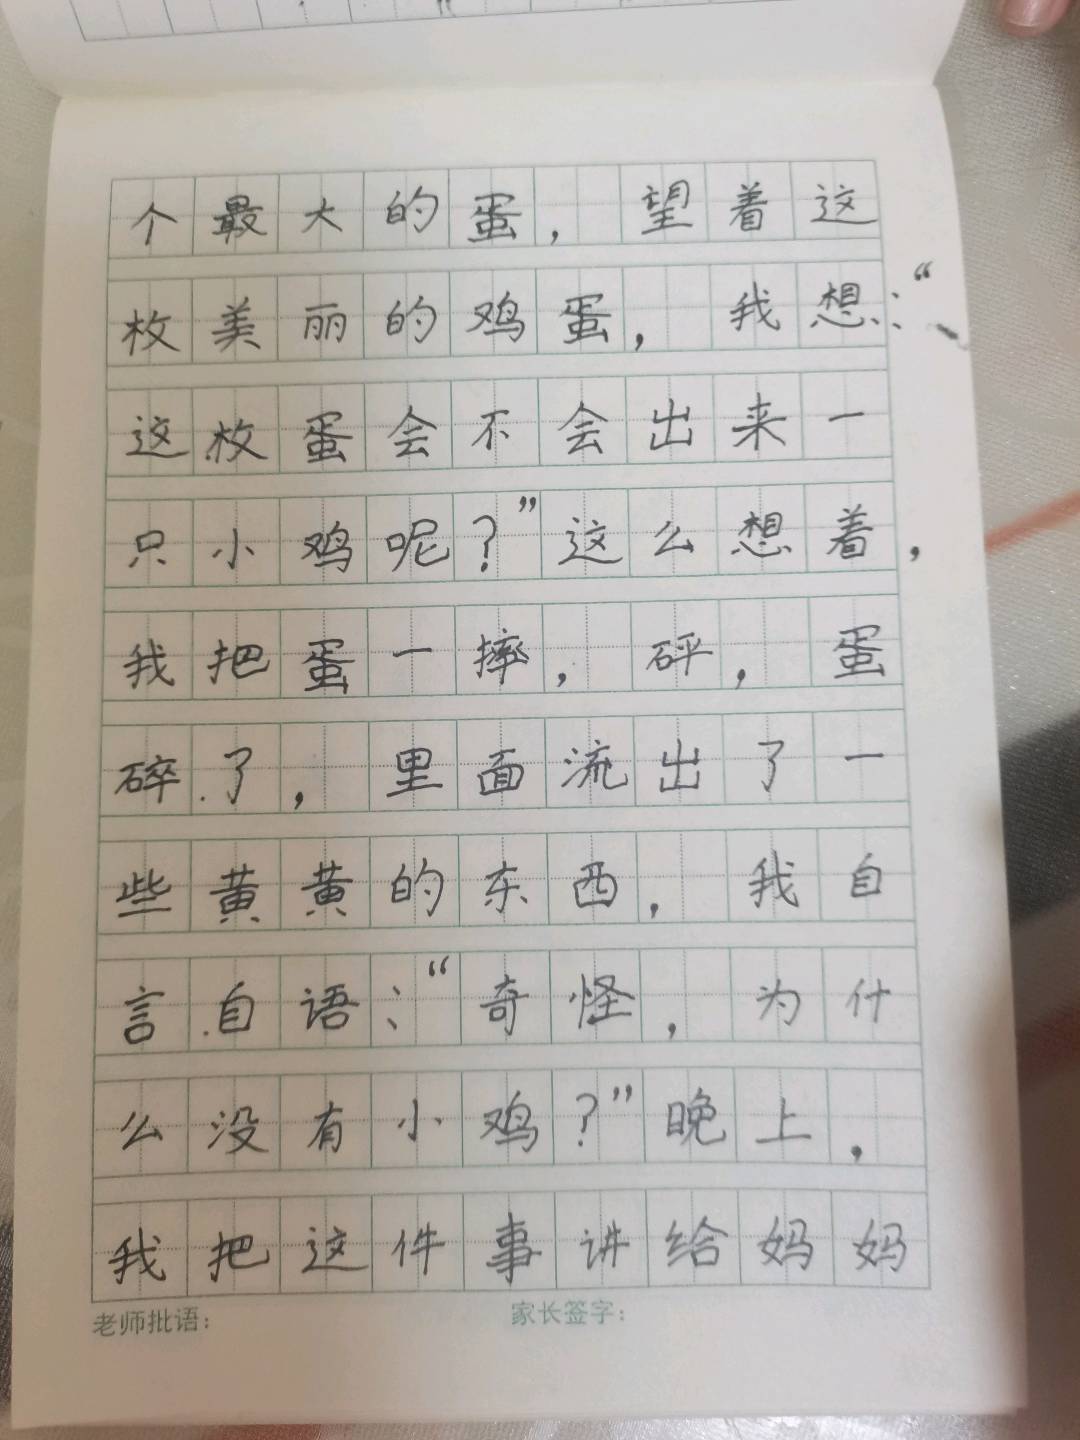 个最大的蛋，望着这
枚美丽的鸡蛋，我想：“
这枚蛋会不会出来一
只小鸡呢？”这么想着，
我把蛋一摔，砰，蛋
碎了，里面流出了一
些黄黄的东西，我自
言自语：“奇怪，为什
么没有小鸡？”晚上，
我把这件事讲给妈妈
老师批语： 家长签字：